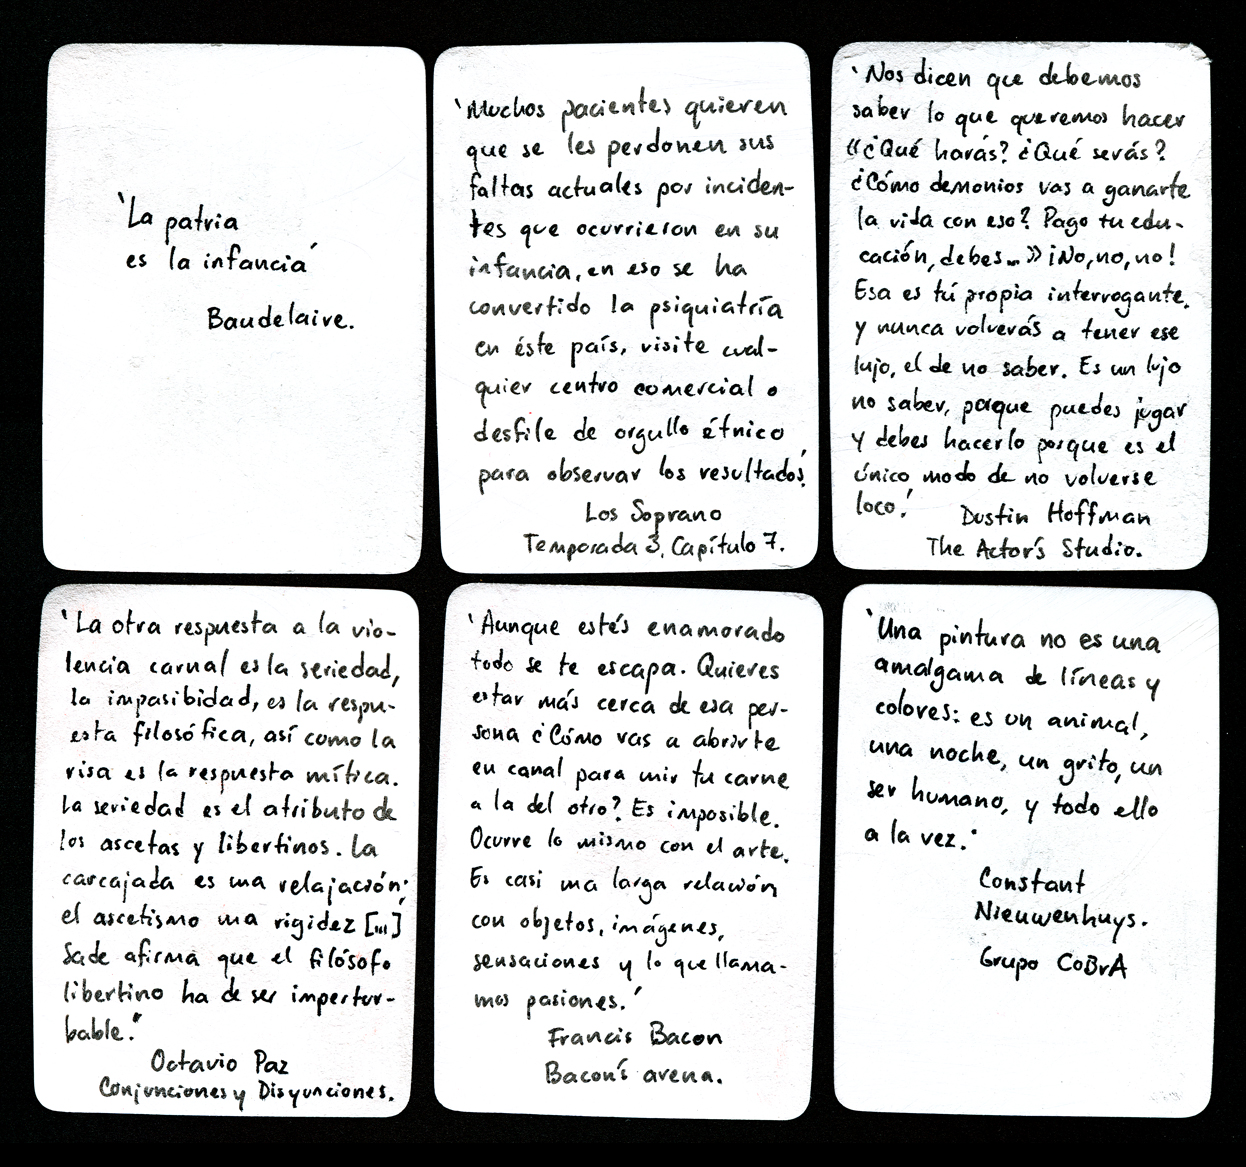 'La patria
es la infancia'
Baudelaire.
'Muchos pacientes quieren
que se les perdonen sus
faltas actuales por inciden-
tes que ocurrieron en su
infancia, en eso se ha
convertido la psiquiatría
en éste país, visite cual-
quier centro comercial o
desfile de orgullo étnico
para observar los resultados'.
Los Soprano
Temporada 3, Capítulo 7.
'Nos dicen que debemos
saber lo que queremos hacer
«¿Qué harás? ¿Qué serás?
¿Cómo demonios vas a ganarte
la vida con eso? Pago tu edu-
cación, debes...» ¡No, no, no!
Esa es tú propia interrogante,
y nunca volverás a tener ese
lujo, el de no saber. Es un lujo
no saber, porque puedes jugar
y debes hacerlo porque es el
único modo de no volverse
loco'.
Dustin Hoffman
The Actor's Studio.
'La otra respuesta a la vio-
lencia carnal es la seriedad,
la impasibidad, es la respu-
esta filosófica, así como la
risa es la respuesta mítica.
La seriedad es el atributo de
los ascetas y libertinos. La
carcajada es una relajación;
el ascetismo una rigidez [...]
Sade afirma que el filósofo
libertino ha de ser impertur-
bable."
Octavio Paz
Conjunciones y Disyunciones.
'Aunque estés enamorado
todo se te escapa. Quieres
estar más cerca de esa per-
sona ¿Cómo vas a abrirte
en canal para unir tu carne
a la del otro? Es imposible.
Ocurre lo mismo con el arte.
Es casi una larga relación
con objetos, imágenes,
sensaciones y lo que llama-
mos pasiones.'
Francis Bacon
Bacon's arena.
'Una pintura no es una
amalgama de líneas y
colores: es un animal,
una noche, un grito, un
ser humano, y todo ello
a la vez.'
Constant
Nieuwenhuys.
Grupo CoBrA